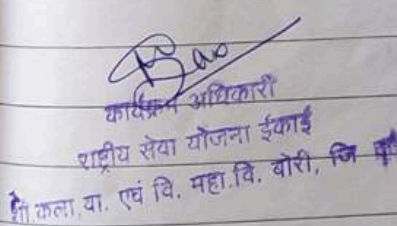 कार्यक्रम अधिकारी
राष्ट्रीय सेवा योजना ईकाई
कला, वा. एवं वि. महा.वि. बोरी, जि